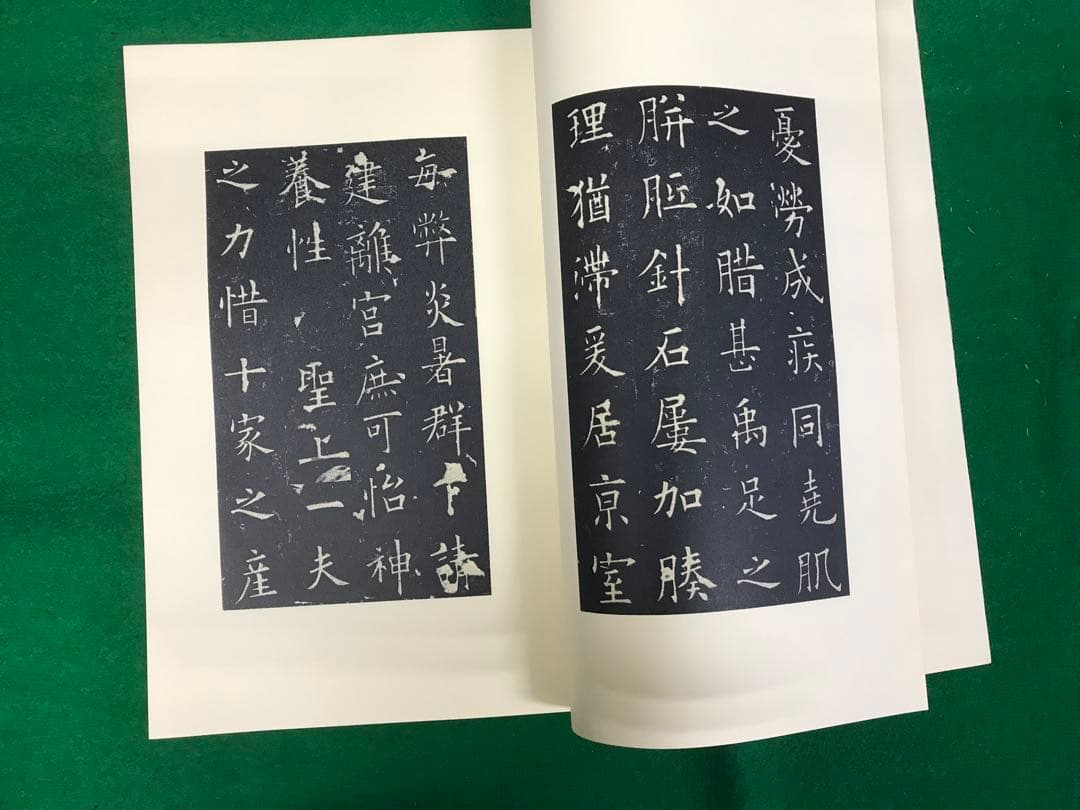 憂勞成疾同堯肌
之如腊甚禹足之
胼胝針石屢加腠
理猶滯爰居京室
每弊炎暑群下請
建離宮庶可怡神
養性聖上一夫
之力惜十家之産